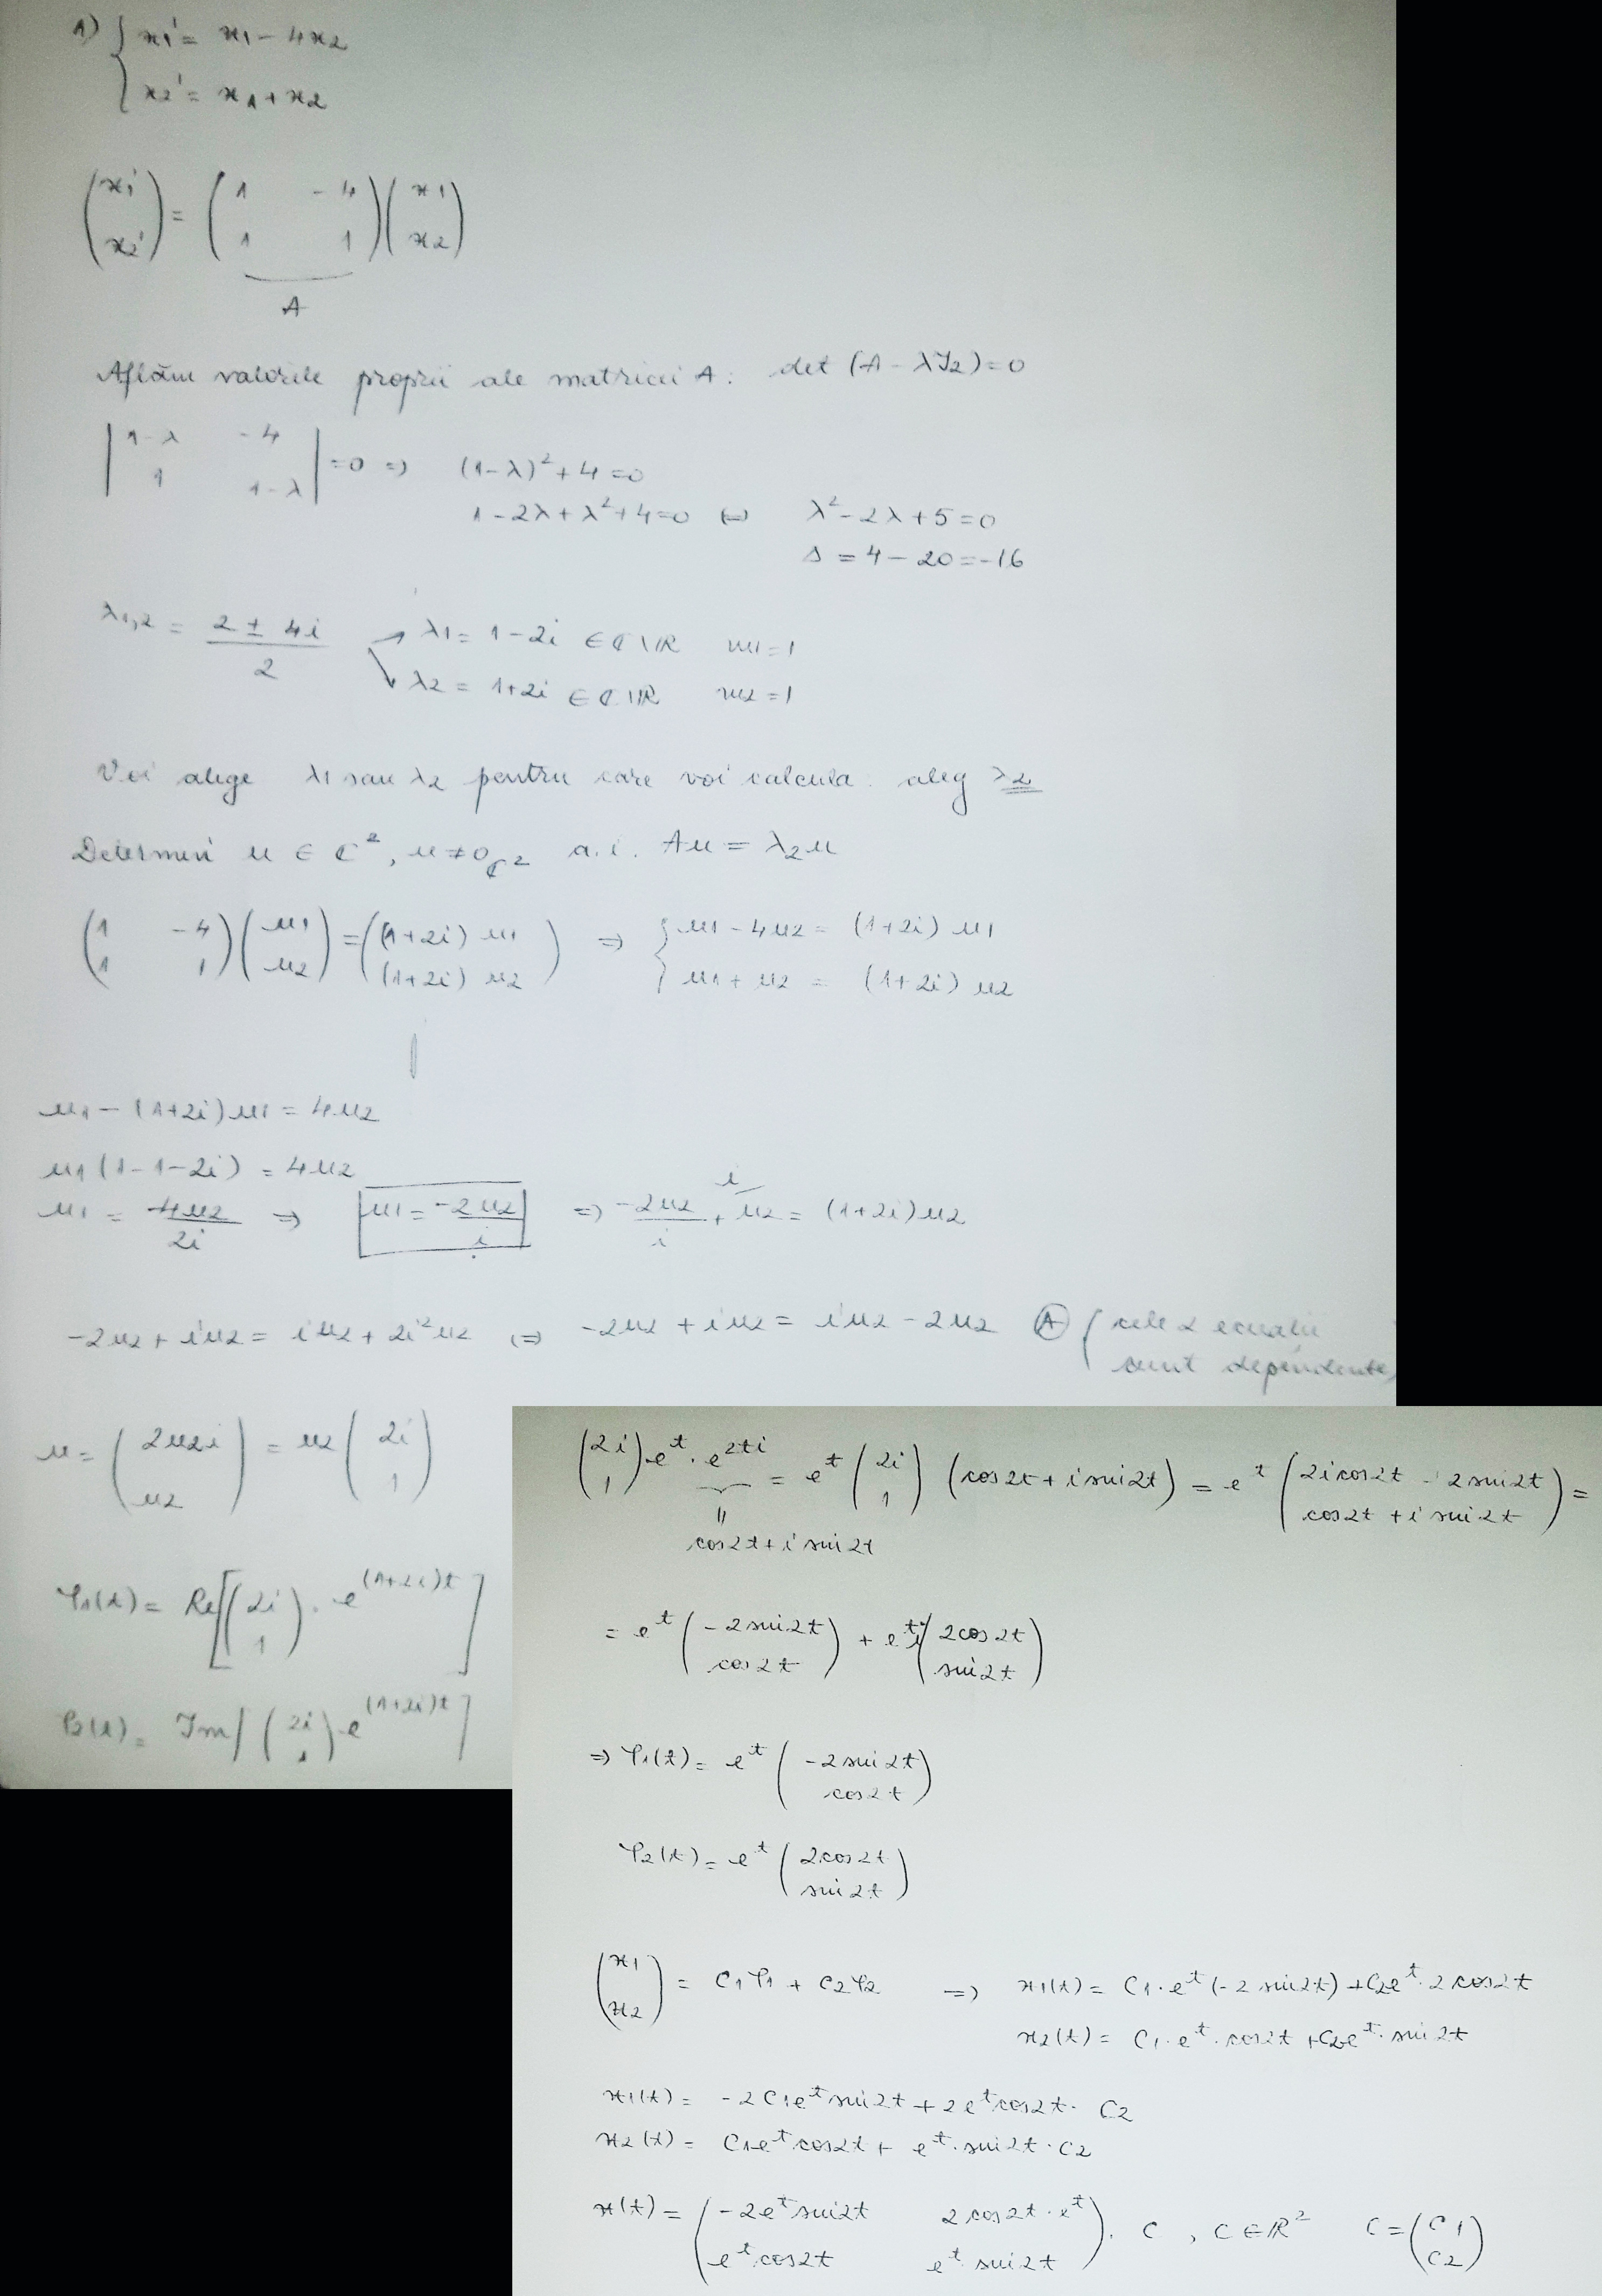 1) { x1' = x1 - 4x2
x2' = x1 + x2
(x1' x2') = (1 -4 1 1) (x1 x2)
A
Aflăm valorile proprii ale matricii A: det (A - λI2) = 0
|1-λ -4 1 1-λ| = 0 => (1-λ)² + 4 = 0
1 - 2λ + λ² + 4 = 0 <=> λ² - 2λ + 5 = 0
Δ = 4 - 20 = -16
λ1,2 = (2 ± 4i)/2 → λ1 = 1 - 2i ∈ C\R m1 = 1
↘ λ2 = 1+2i ∈ C\R m2 = 1
Voi alege λ1 sau λ2 pentru care voi calcula: aleg λ2
Determin u ∈ C², u ≠ 0C² a.î. Au = λ2u
(1 -4 1 1) (u1 u2) = ((1+2i) u1 (1+2i) u2) => { u1 - 4u2 = (1+2i) u1
u1 + u2 = (1+2i) u2
u1 - (1+2i)u1 = 4u2
u1 (1-1-2i) = 4u2
u1 = -4u2/2i => u1 = -2u2/i => -2u2/i + u2 = (1+2i)u2
-2u2 + iu2 = iu2 + 2i²u2 <=> -2u2 + iu2 = iu2 - 2u2 (A) (cele 2 ecuatii
sunt dependente)
u = (2u2i u2) = u2 (2i 1)
φ1(t) = Re[(2i 1) · e^(1+2i)t]
φ2(t) = Im[(2i 1) · e^(1+2i)t]
(2i 1) · e^t · e^2ti = e^t (2i 1) (cos2t + i sin2t) = e^t (2icos2t - 2sin2t cos2t + i sin2t) =
cos2t + i sin2t
= e^t (-2sin2t cos2t) + e^t i (2cos2t sin2t)
=> φ1(t) = e^t (-2sin2t cos2t)
φ2(t) = e^t (2cos2t sin2t)
(x1 x2) = C1φ1 + C2φ2 => x1(t) = C1·e^t (-2 sin2t) + C2e^t · 2 cos2t
x2(t) = C1·e^t · cos2t + C2e^t · sin2t
x1(t) = -2C1e^t sin2t + 2e^t cos2t · C2
x2(t) = C1e^t cos2t + e^t · sin2t · C2
x(t) = (-2e^t sin2t 2cos2t · e^t e^t cos2t e^t · sin2t) · C , C ∈ R² C = (C1 C2)